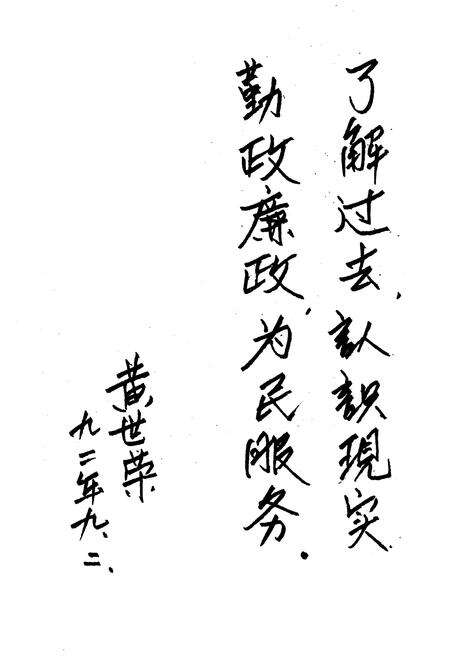 了解过去,認識現实
勤政廉政,为民服务.
黄世荣
九二年九、二、